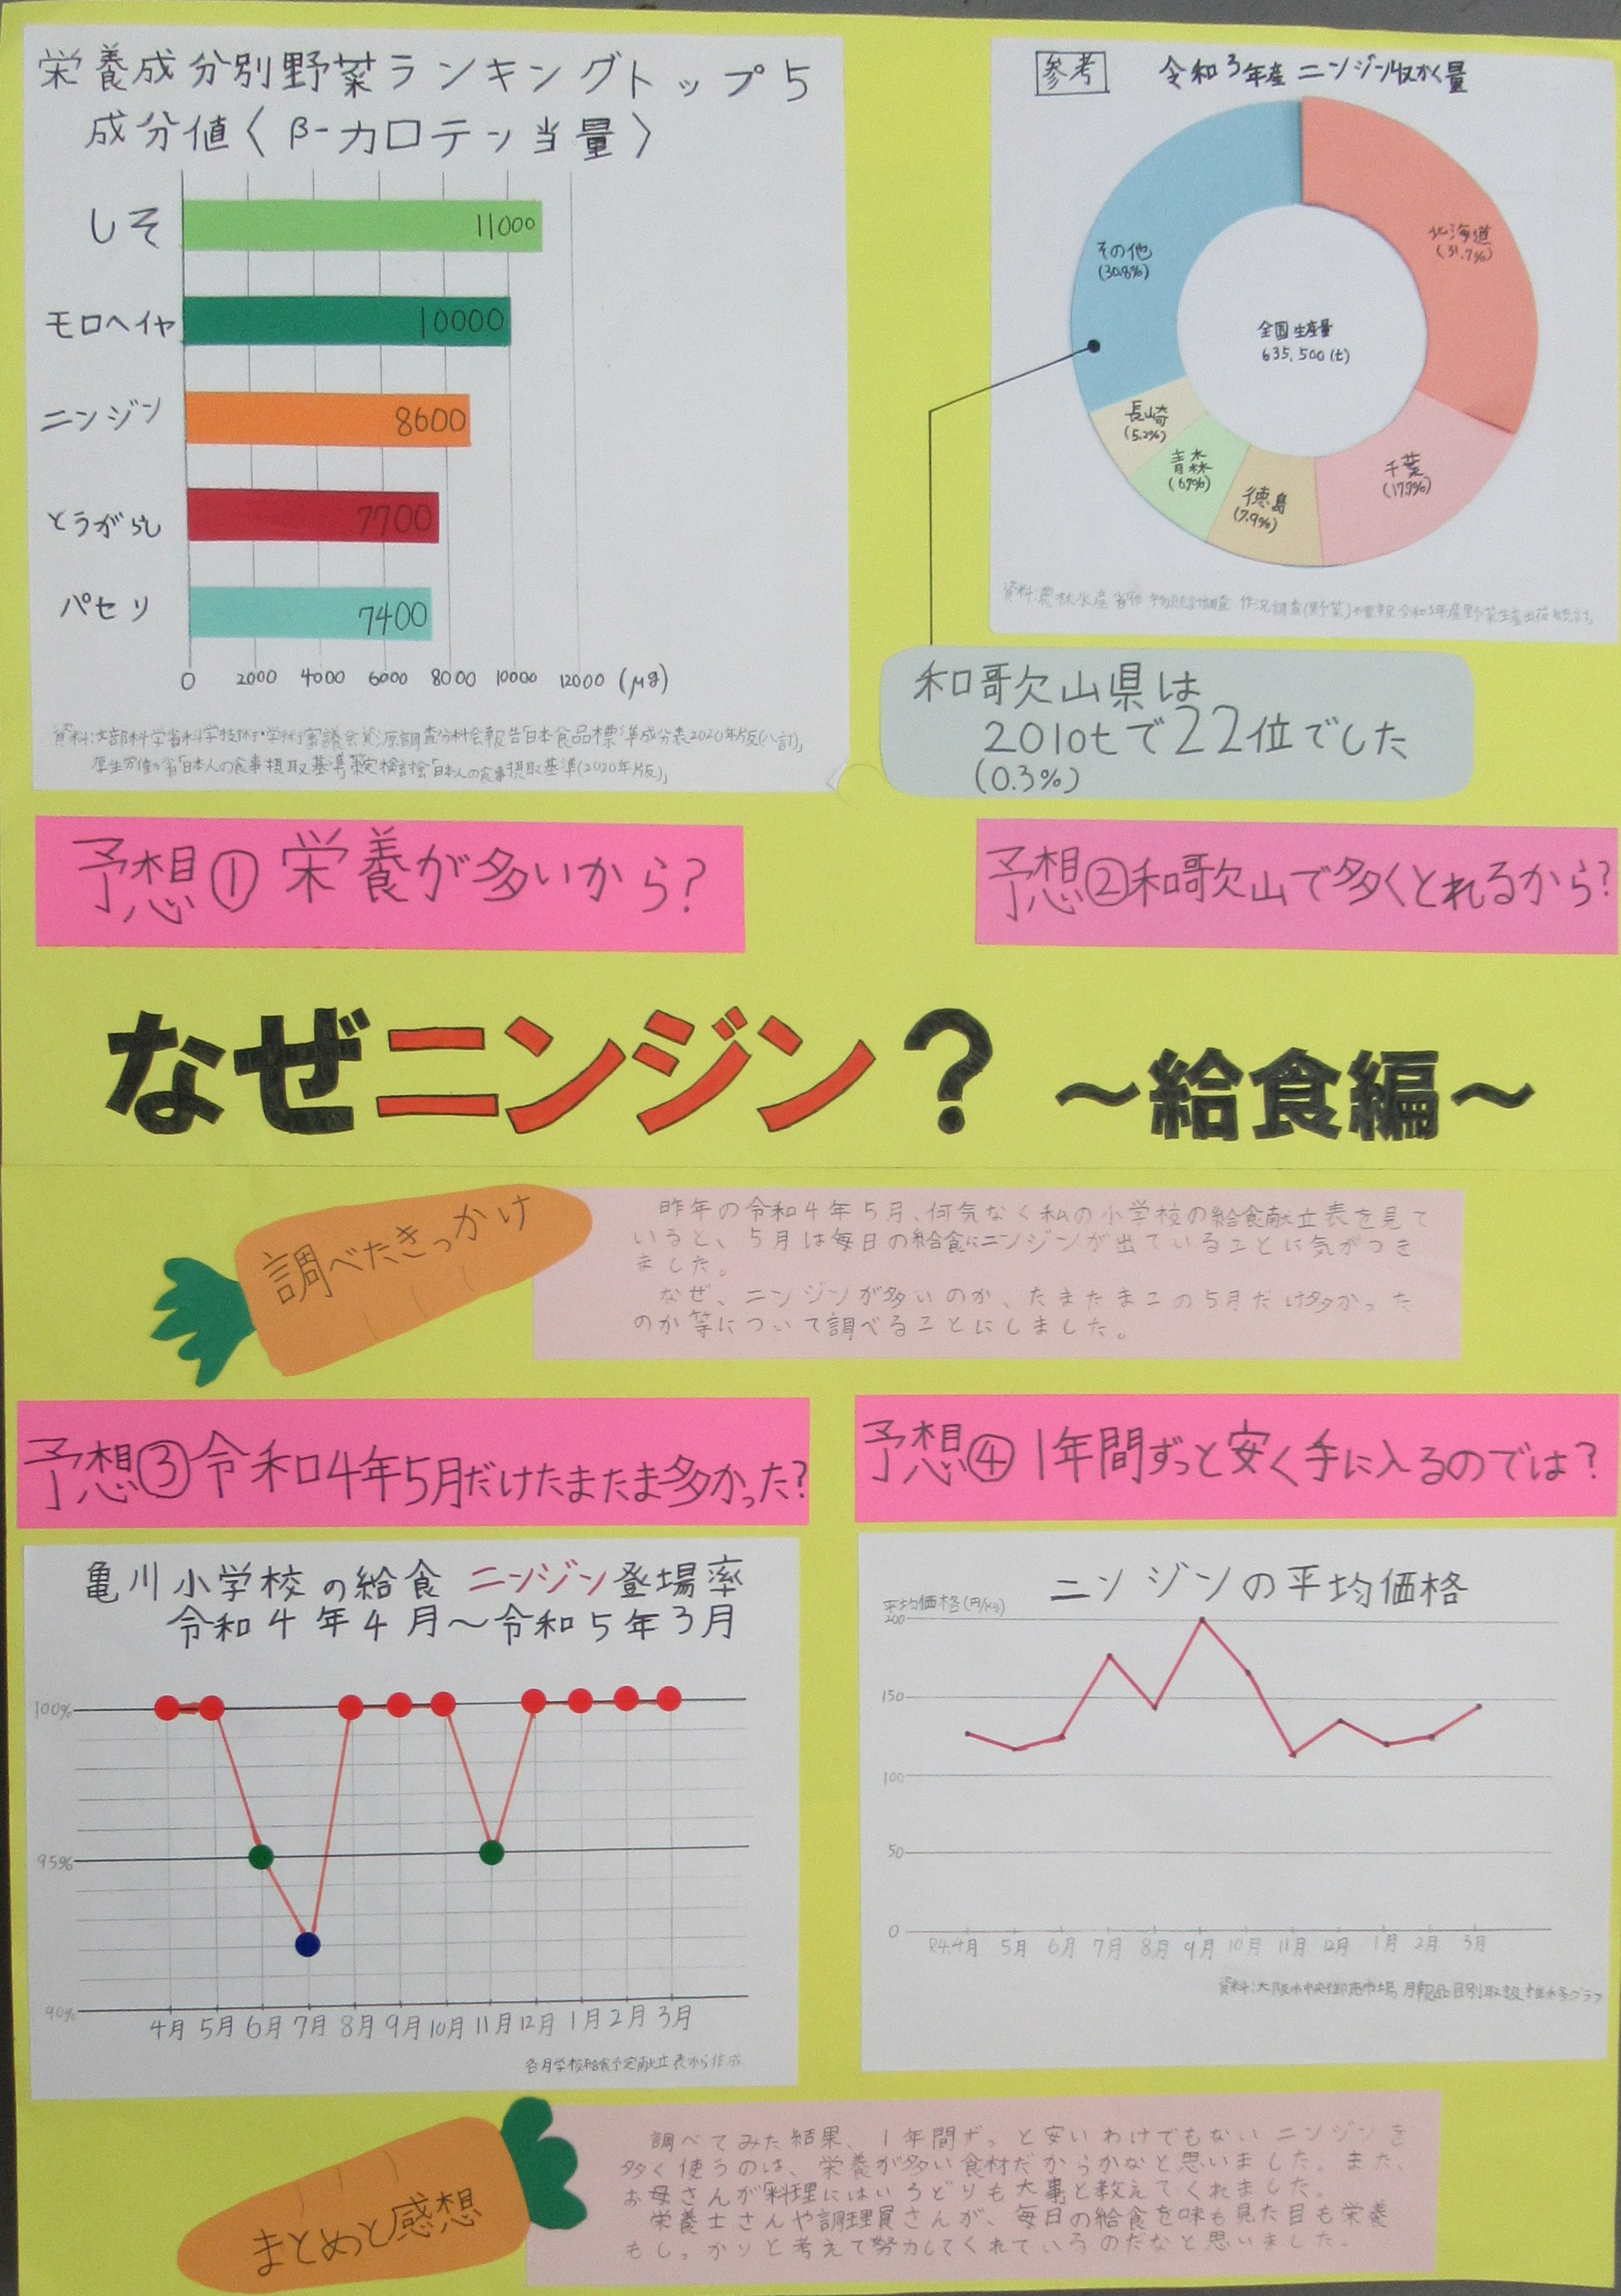 栄養成分別野菜ランキングトップ5
成分値〈β-カロテン当量〉
しそ
11000
モロヘイヤ
10000
ニンジン
8600
とうがらし
7700
パセリ
7400
0 2000 4000 6000 8000 10000 12000 (μg)
資料:文部科学省科学技術・学術審議会資源調査分科会報告「日本食品標準成分表2020年版(八訂)」
厚生労働省「日本人の食事摂取基準」策定検討会「日本人の食事摂取基準(2020年版)」
参考 令和3年産ニンジン収かく量
北海道
(31.7%)
その他
(30.8%)
全国生産量
635,500(t)
長崎
(5.2%)
青森
徳島
(7.9%)
千葉
資料:農林水産省 作況調査(野菜) 令和3年産野菜生産出荷統計
和歌山県は
2010tで22位でした
(0.3%)
予想①栄養が多いから?
予想②和歌山で多くとれるから?
なぜニンジン?～給食編～
調べたきっかけ
昨年の令和4年5月、何気なく私の小学校の給食献立表を見て
いると、5月は毎日の給食にニンジンが出ていることに気がつき
ました。
なぜ、ニンジンが多いのか、たまたまこの5月だけ多かった
のか等について調べることにしました。
予想③令和4年5月だけたまたま多かった?
予想④1年間ずっと安く手に入るのでは?
亀川小学校の給食 ニンジン登場率
令和4年4月～令和5年3月
100%
95%
90%
4月 5月 6月 7月 8月 9月 10月 11月 12月 1月 2月 3月
各月学校給食予定献立表から作成
ニンジンの平均価格
平均価格(円/kg)
200
150
100
50
0
R4.4月 5月 6月 7月 8月 9月 10月 11月 12月 1月 2月 3月
資料:大阪市中央卸売市場 月報品目別取扱
まとめと感想
調べてみた結果、1年間ずっと安いわけでもないニンジンを
多く使うのは、栄養が多い食材だからかなと思いました。また、
お母さんが「料理にはいろどりも大事」と教えてくれました。
栄養士さんや調理員さんが、毎日の給食を味も見た目も栄養
もしっかりと考えて努力してくれているのだなと思いました。